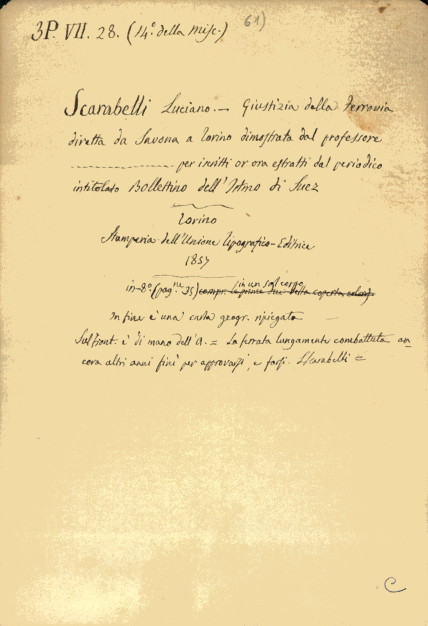 3P. VII. 28. (14.º della Misc.) 61)
Scarabelli Luciano. — Giustizia della Ferrovia
diretta da Savona a Torino dimostrata dal professore
per iscritti or ora estratti dal periodico
intitolato Bollettino dell'Istmo di Suez
Torino
Stamperia dell'Unione Tipografico-Editrice
1857
in un sol corpo
in-8º (pag.ne 35) compr. le prime due della coperta
In fine è una carta geogr. ripiegata
Sul front. è di mano dell'A. = La ferrata lungamente combattuta an
cora altri anni finì per approvarsi, e farsi. LScarabelli =
C